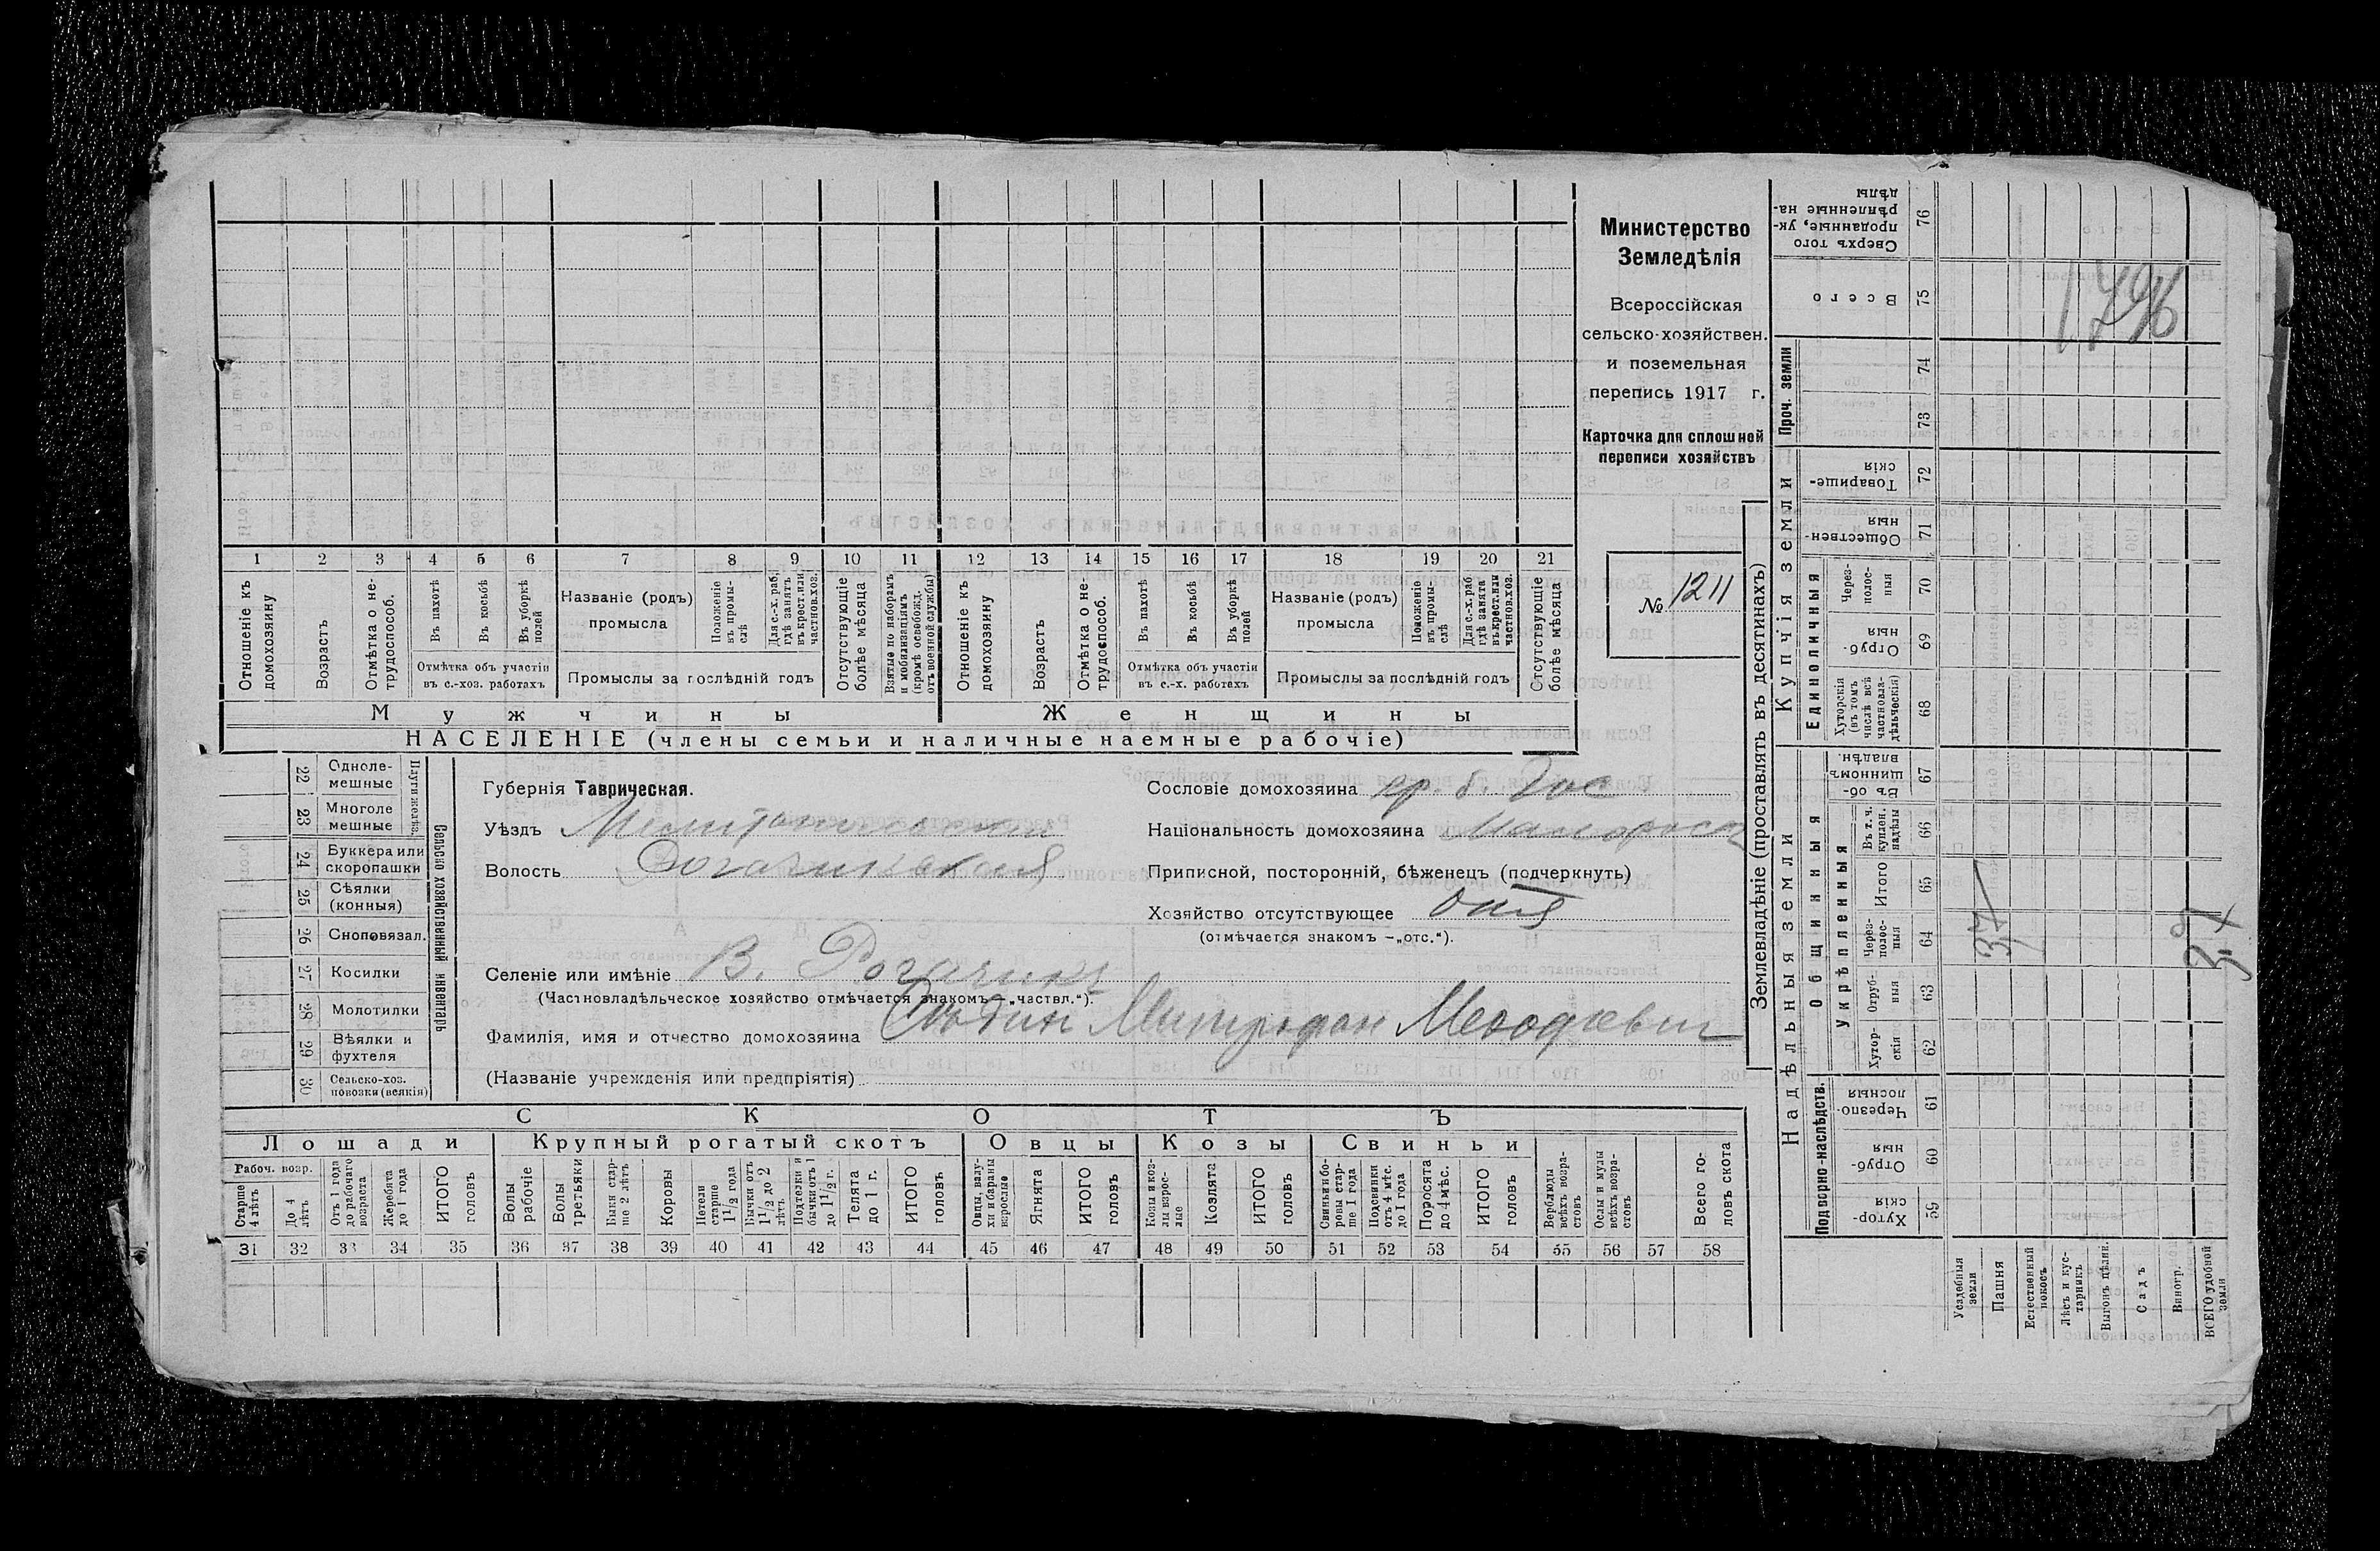 Министерство
Земледѣлія
Всероссійская
сельско-хозяйствен.
и поземельная
перепись 1917 г.
Карточка для сплошной
переписи хозяйствъ
№ 1211
1 2 3 4 5 6 7 8 9 10 11 12 13 14 15 16 17 18 19 20 21
Отношеніе къ домохозяину
Возрастъ
Отмѣтка о не-трудоспособ.
Въ пахотѣ
Въ косьбѣ
Въ уборкѣ полей
Отмѣтка объ участіи въ с.-хоз. работахъ
Названіе (родъ) промысла
Положеніе въ промы-слѣ
Для с.-х. раб. гдѣ занятъ въ крест. или частнов. хоз.
Промыслы за послѣдній годъ
Отсутствующіе болѣе мѣсяца
Взятые по наборамъ и мобилизаціямъ (кромѣ освобожд. отъ военной службы)
Отношеніе къ домохозяину
Возрастъ
Отмѣтка о не-трудоспособ.
Въ пахотѣ
Въ косьбѣ
Въ уборкѣ полей
Отмѣтка объ участіи въ с.-х. работахъ
Названіе (родъ) промысла
Положеніе въ промы-слѣ
Для с.-х. раб. гдѣ занята въ крест. или частнов. хоз.
Промыслы за послѣдній годъ
Отсутствующіе болѣе мѣсяца
Мужчины Женщины
НАСЕЛЕНІЕ (члены семьи и наличные наемные рабочіе)
22 Одноле-мешные
23 Многоле мешные
Плуги желѣз.
24 Буккера или скоропашки
25 Сѣялки (конныя)
26 Сноповязал.
27 Косилки
28 Молотилки
29 Вѣялки и фухтеля
30 Сельско-хоз. повозки (всякія)
Сельско хозяйственный инвентарь
Губернія Таврическая.
Уѣздъ Мелитопольскій
Волость Рогачикская
Селеніе или имѣніе В. Рогачикъ
(Частновладѣльческое хозяйство отмѣчается знакомъ – „частвл.“).
Фамилія, имя и отчество домохозяина Митрофан Меѳодіевич
(Названіе учрежденія или предпріятія)
Сословіе домохозяина кр. б. Гос
Національность домохозяина Малоросс
Приписной, посторонній, бѣженецъ (подчеркнуть)
Хозяйство отсутствующее
(отмѣчается знакомъ – „отс.“).
СКОТЪ
Лошади Крупный рогатый скотъ Овцы Козы Свиньи
Рабоч. возр.
Старше 4 лѣтъ
До 4 лѣтъ
Отъ 1 года до рабочаго возраста
Жеребята до 1 года
ИТОГО головъ
Волы рабочіе
Волы третьяки
Быки стар-ше 2 лѣтъ
Коровы
Нетели старше 1½ года
Бычки отъ 1½ до 2 лѣтъ
Подтелки и бычки отъ 1 до 1½ г.
Телята до 1 г.
ИТОГО головъ
Овцы, валу-хи и бараны взрослые
Ягнята
ИТОГО головъ
Козы и коз-лы взрос-лые
Козлята
ИТОГО головъ
Свиньи и бо-ровы стар-ше 1 года
Подсвинки отъ 4 мѣс. до 1 года
Поросята до 4 мѣс.
ИТОГО головъ
Верблюды всѣхъ возра-стовъ
Ослы и мулы всѣхъ возра-стовъ
Всего го-ловъ скота
31 32 33 34 35 36 37 38 39 40 41 42 43 44 45 46 47 48 49 50 51 52 53 54 55 56 57 58
Землевладѣніе (проставлять въ десятинахъ)
Надѣльныя земли
Купчія земли
Проч. земли
Подворно-наслѣдств.
Общинныя
Укрѣпленныя
Единоличныя
Сверхъ того проданные, ук-рѣпленные на-дѣлы 76
Всего 75
74
73
Товарище-скія 72
Обществен-ныя 71
Через-полос-ныя 70
Отруб-ныя 69
Хуторскія (въ томъ числѣ всѣ частновла-дѣльческія) 68
Въ об-щинномъ владѣн. 67
Въ т. ч. куплен. надѣлы 66
Итого 65
Через-полос-ныя 64
Отруб-ныя 63
Хутор-скія 62
Черезпо-лосныя 61
Отруб-ныя 60
Хутор-скія 59
Усадебныя земли
Пашня
Естественный покосъ
Лѣсъ и кус-тарникъ
Выгонъ цѣлин.
Садъ
Виногр.
ВСЕГО удобной земли
1796
37